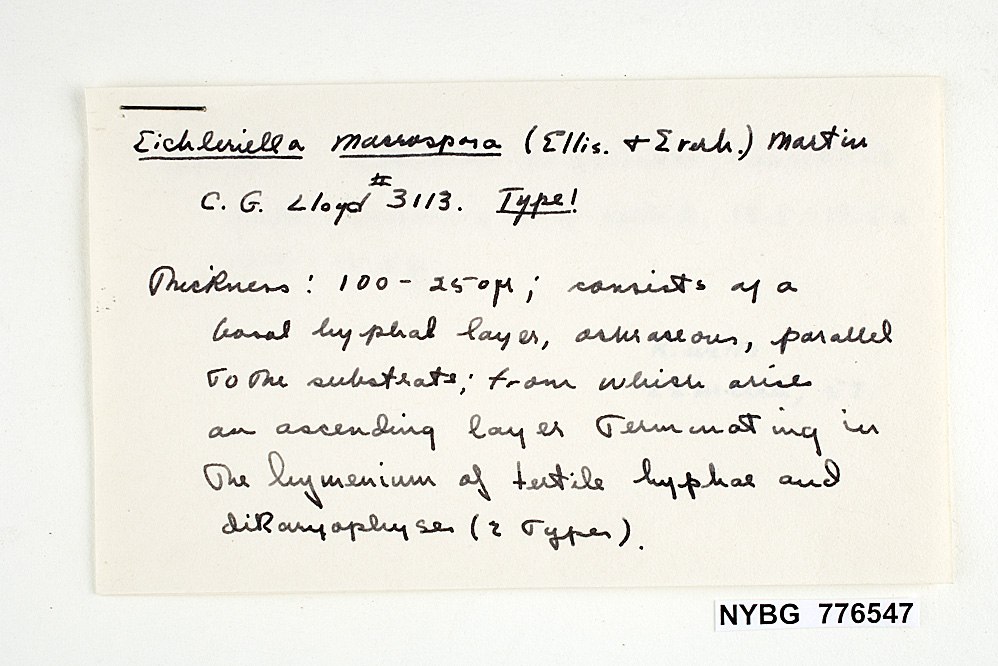 Eichleriella macrospora (Ellis. + Everh.) Martin
C. G. Lloyd # 3113. Type!
Thickness: 100-250μ; consists of a
basal hyphal layer, ochraceous, parallel
to the substrate; from which arises
an ascending layer terminating in
the hymenium of fertile hyphae and
dikaryophyses (2 types).
NYBG 776547